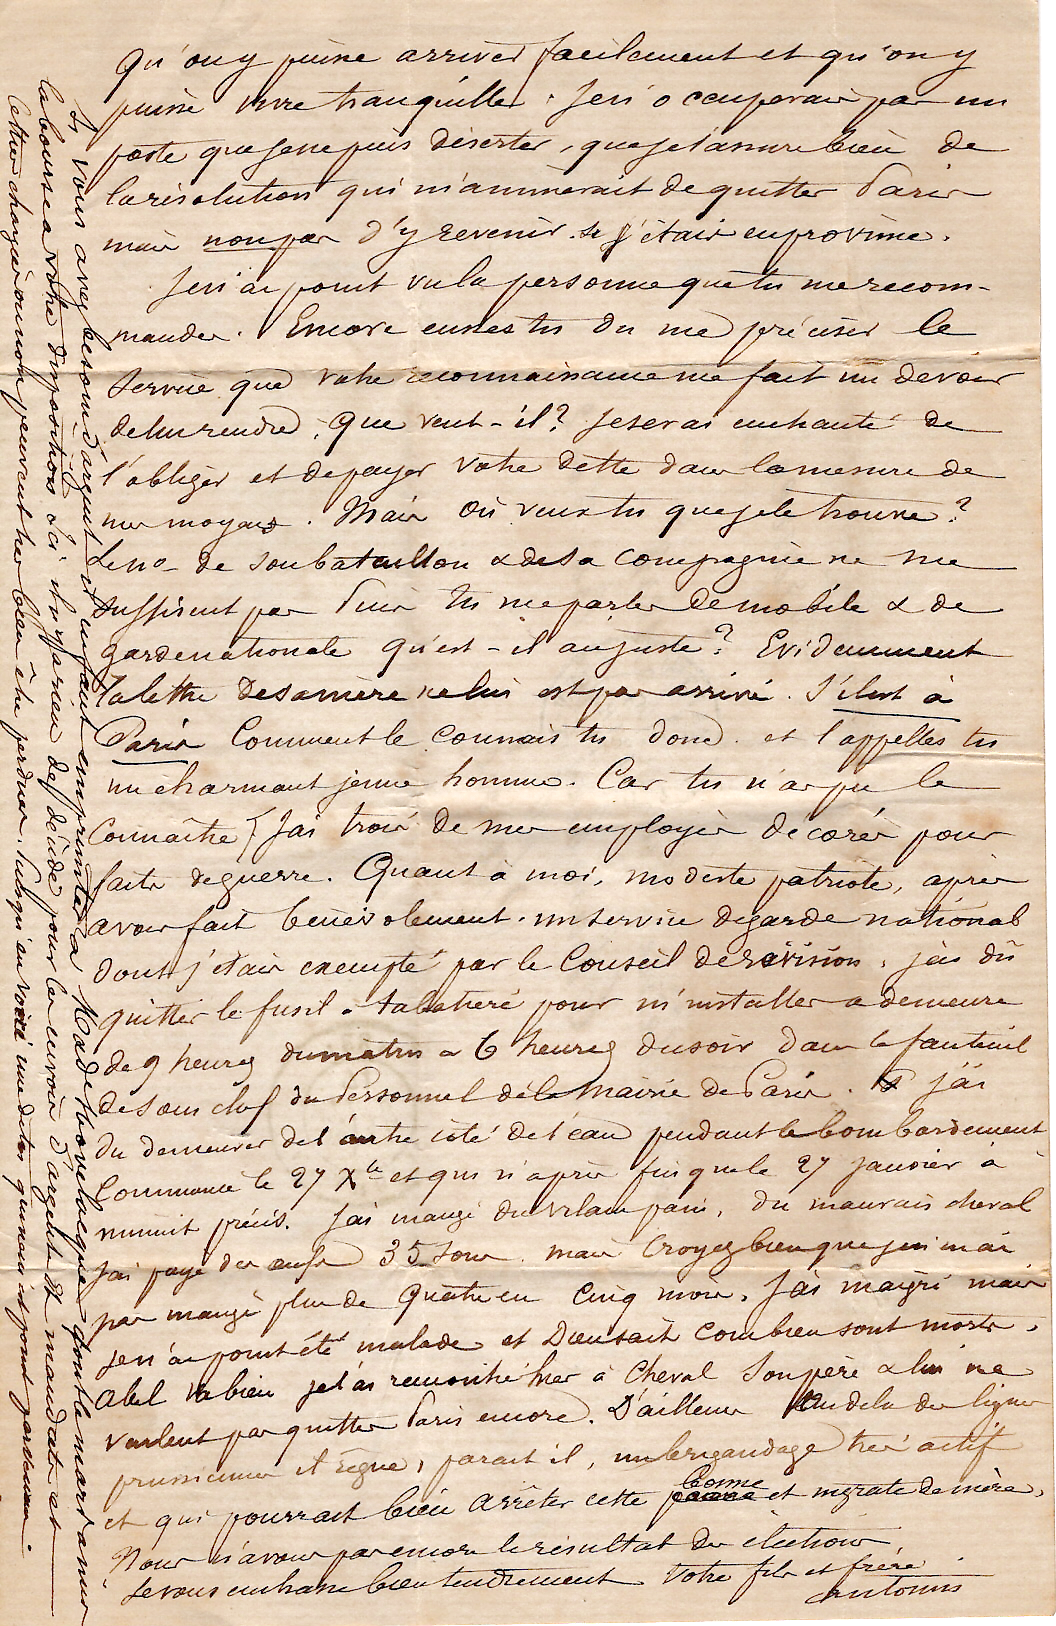 qu'on y puisse arriver facilement et qu'on y
puisse vivre tranquille. Je n'occuperais pas un
poste que je ne puis déserter, que je t'assure bien de
la résolution qui m'animerait de quitter Paris
mais non pas d'y revenir si j'étais en province.
Je n'ai point vu la personne que tu me recom-
mandes. Encore eusses tu du me préciser le
service que votre reconnaissance me fait un devoir
de lui rendre. Que veut-il? Je serai enchanté de
l'obliger et de payer votre dette dans la mesure de
mes moyens. Mais où veux tu que je le trouve?
Le no de son bataillon & de sa compagnie ne me
suffisent pas Puis tu me parles de mobile & de
garde nationale qu'est-il au juste? Evidemment
la lettre de sa mère ne lui est pas arrivé. S'il est à
Paris comment le connais tu donc et l'appelles tu
un charmant jeune homme. Car tu n'as pu le
connaître J'ai trois de mes employés décorés pour
faits de guerre. Quant à moi, modeste patriote, après
avoir fait bénévolement un service de garde national
dont j'étais exempté par le Conseil de révision, j'ai dû
quitter le fusil à tabatière pour m'installer a demeure
de 9 heures du matin a 6 heures du soir dans le fauteuil
de sous chef du Personnel de la Mairie de Paris. J'ai
du demeurer de l'autre coté de l'eau pendant le bombardement
Commencé le 27 Xbre et qui n'a pris fin que le 27 janvier à
minuit précis. J'ai mangé du vilain pain, du mauvais cheval
J'ai payé des œufs 35 sous mais croyez bien que je n'en ai
pas mangé plus de quatre en cinq mois. J'ai maigri mais
je n'ai point été malade et Dieu sait combien sont morts.
Abel va bien je l'ai rencontré hier à cheval Son père & lui ne
veulent pas quitter Paris encore. D'ailleurs au dela des lignes
prussiennes il règne, parait il, un brigandage très actif
et qui pourrait bien arrêter cette bonne et ingrate de mère,
Nous n'avons pas encore le résultat des élections
Je vous embrasse bien tendrement Votre fils et frère
Antonin
Si vous avez besoin d'argent il en faut emprunter à Made Hovelacque dont le mari a mis
la bourse a votre disposition d'ici il n'y a rien de décidé pour les envois d'argent et mandats et
lettres chargées ou non peuvent très bien être perdues. Puisqu'en voilà une de toi qui n'est point parvenue.